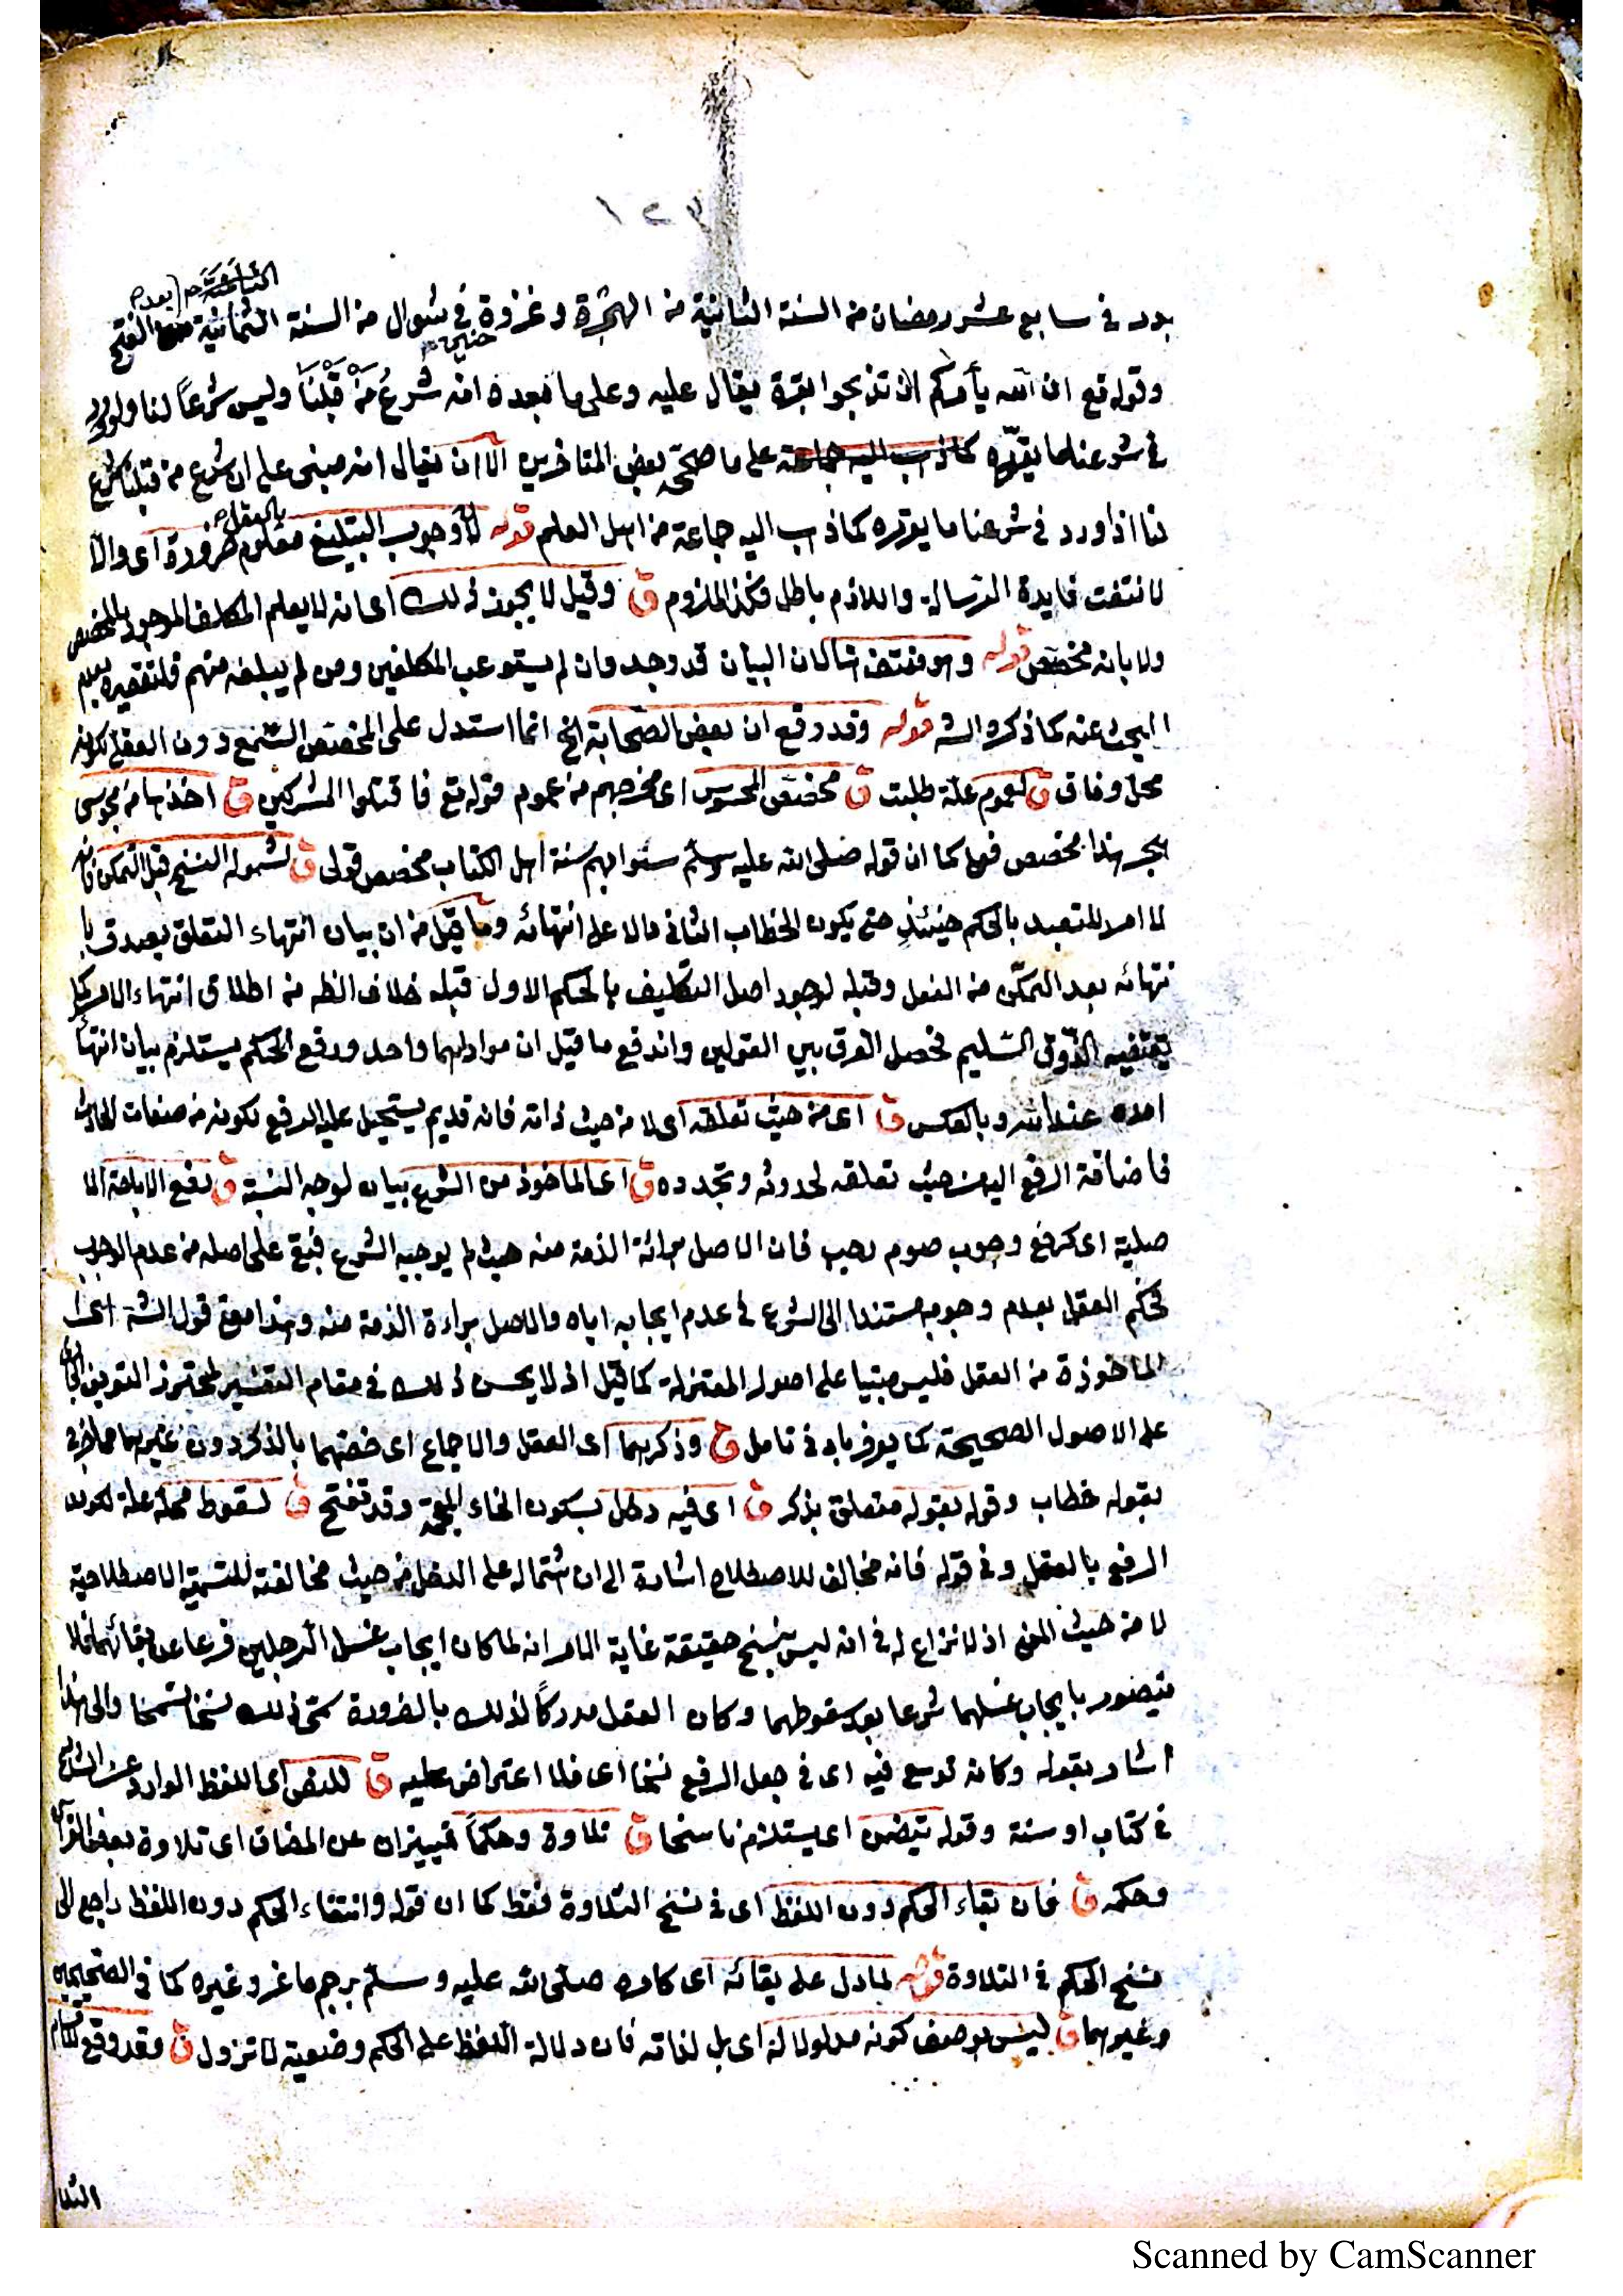 ١٢٣
الثامنة صح بعد صح
بدر في سابع عشر رمضان من السنة الثانية من الهجرة وغزوة في شوال من السنة الثمانية الفتح
حنين صح
وقوله تع ان الله يأمركم ان تذبحوا بقرة يقال عليه وعلى ما بعده انه شرع مَنْ قَبْلَنَا وليس شرعاً لنا ولو ورد
في شرعنا ما يقرّره كما ذهب اليه جماعة على ما صحّحه بعض المتاخرين الا ان يقال انه مبنى على ان شرع من قبلنا شرع
بالعقل صح
لنا اذا ورد في شرعنا ما يقرره كما ذهب اليه جماعة من اهل العلم قوله لان وجوب التبليغ معلوم ضرورة اى والا
لانتفت فايدة الرسالة واللازم باطل فكذا الملزوم ق وقيل لا يجوز ذلك اى انه لا يعلم المكلف الموجود بالمخصص
ولا بانه مخصص قوله وهو منتف هنا لان البيان قد وجد وان لم يستوعب المكلفين ومن لم يبلغه منهم فلتقصيره بعدم
البحث عنه كما ذكره الشه قوله وقد وقع ان بعض الصحابة الخ انما استدل على المخصص السمع دون العقلى لكونه
محل وفاق ق لعموم علة طلبت ق مخصص المجوس اى مخرجهم من عموم قوله تع فاقتلوا المشركين ق اخذها من مجوسى
هجر هذا مخصص فعلى كما ان قوله صلى الله عليه وسلم سنوا بهم سنة اهل الكتاب مخصص قولى ق لشموله النسخ قبل التمكن فانه
لا امر للتعبد بالحكم حينئذٍ حتى يكون الخطاب الثانى دالا على انتهائه وما قيل من ان بيان انتهاء التعلق يصدق با
نتهائه بعد التمكّن من الفعل وقبله لوجود اصل التكليف بالحكم الاول قبله خلاف الظه من اطلاق انتهاء الامر كما
يقتضيه الذّوق السّليم فحصل الفرق بين القولين واندفع ما قيل ان مرادهما واحد ورفع الحكم يستلزم بيان انتهأ
امده عند الله وبالعكس ق اى من حيث تعلقه اى لا من حيث ذاته فانه قديم يستحيل عليه الرفع لكونه من صفات الحادث
فاضافة الرفع اليه من حيث تعلقه لحدوثه وتجدده ق اى الماخوذ من الشرع بيان لوجه النسبة ق رفع الاباحة الا
صلية اى كرفع وجوب صوم رجب فان الاصل برائة الذمة منه حيث لم يوجبه الشرع فبقى على اصله من عدم الوجوب
فحكم العقل بعدم وجوبه مستندا الى الشرع في عدم ايجابه اياه والاصل براءة الذمة منه وهذا معنى قول الشه اى
الماخوذة من العقل فليس مبتيا على اصول المعتزلة كما قيل اذ لا يحسن ذلك في مقام التفسير لمحترز التعريف الجارى
على الاصول الصحيحة كما يعرف بادنى تامل ق وذكرهما اى العقل والاجماع اى خصهما بالذكر دون غيرهما مما خرج
بقوله خطاب وقوله بقوله متعلق بذكر ق اى فيه دخل بسكون الخاء المعجمة وقد تفتح ق لسقوط محله علة لكون
الرفع بالعقل وفي قوله فانه مخالف للاصطلاح اشارة الى ان اشتماله على الدخل من حيث مخالفته للتسمية الاصطلاحية
لا من حيث المعنى اذ لا نزاع له في انه ليس بنسخ حقيقة غاية الامر انه لما كان ايجاب غسل الرجلين فرعا عن بقائهما فلا
يتصور بايجاب غسلهما شرعا بعد سقوطهما وكان العقل مدركاً لذلك بالضرورة سمّى ذلك نسخا تسمحا والى هذا
اشار بقوله وكانه توسع فيه اى في جعل الرفع نسخا اى فلا اعتراض عليه ق للنص اى اللفظ الوارد عن الشارع
في كتاب او سنة وقوله يتضمن اى يستلزم ناسخا ق تلاوة وحكماً تمييزان عن المضاف اى تلاوة بعض القرآن
وحكمه ق فان بقاء الحكم دون اللفظ اى في نسخ التلاوة فقط كما ان قوله وانتفاء الحكم دون اللفظ راجع الى
نسخ الحكم في التلاوة قوله لما دل على بقائه اى كامره صلى الله عليه وسلم برجم ماعز وغيره كما في الصحيحين
وغيرهما ق ليس بوصف كونه مدلولا له اى بل لذاته فان دلالة اللفظ على الحكم وضعية لا تزول ق وقد وقع اقسام
الثلا
Scanned by CamScanner